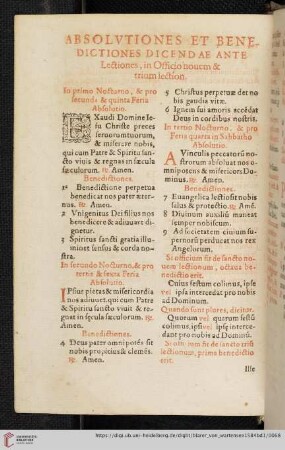 ABSOLVTIONES ET BENE-
DICTIONES DICENDAE ANTE
Lectiones, in Officio nouem &
trium lection.
In primo Nocturno, & pro
secunda & quinta Feria
Absolutio.
EXaudi Domine Ie-
su Christe preces
seruorum tuorum,
& miserere nobis,
qui cum Patre & Spiritu san-
cto viuis & regnas in sæcula
sæculorum. ℟. Amen.
Benedictiones.
1 Benedictione perpetua
benedicat nos pater æter-
nus. ℟. Amen.
2 Vnigenitus Dei filius nos
benedicere & adiuuare di-
gnetur.
3 Spiritus sancti gratia illu-
minet sensus & corda no-
stra.
In secundo Nocturno, & pro
tertia & sexta Feria
Absolutio.
IPsius pietas & misericordia
nos adiuuet, qui cum Patre
& Spiritu sancto viuit & re-
gnat in sæcula sæculorum. ℟.
Amen.
Benedictiones.
4 Deus pater omnipotēs sit
nobis propitius & clemēs.
5 Christus perpetuæ det no-
bis gaudia vitæ.
6 Ignem sui amoris accēdat
Deus in cordibus nostris.
In tertio Nocturno, & pro
Feria quarta & Sabbatho
Absolutio.
A Vinculis peccatorū no-
strorum absoluat nos o-
mnipotens & misericors Do-
minus. ℟. Amen.
Benedictiones.
7 Euangelica lectio sit nobis
salus & protectio. ℟. Amē.
8 Diuinum auxiliū maneat
semper nobiscum.
9 Ad societatem ciuium su-
pernorū perducat nos rex
Angelorum.
Si officium fit de sancto no-
uem lectionum, octaua be-
nedictio erit.
Cuius festum colimus, ipse
vel ipsa intercedat pro nobis
ad Dominum.
Quando sunt plures, dicitur.
Quorum vel quarum festū
colimus, ipsi vel ipsæ interce-
dant pro nobis ad Dominum.
lectionum, prima benedictio
erit.
Ille
https://digi.ub.uni-heidelberg.de/diglit/librarer_von_wartensee1584bd1/0068